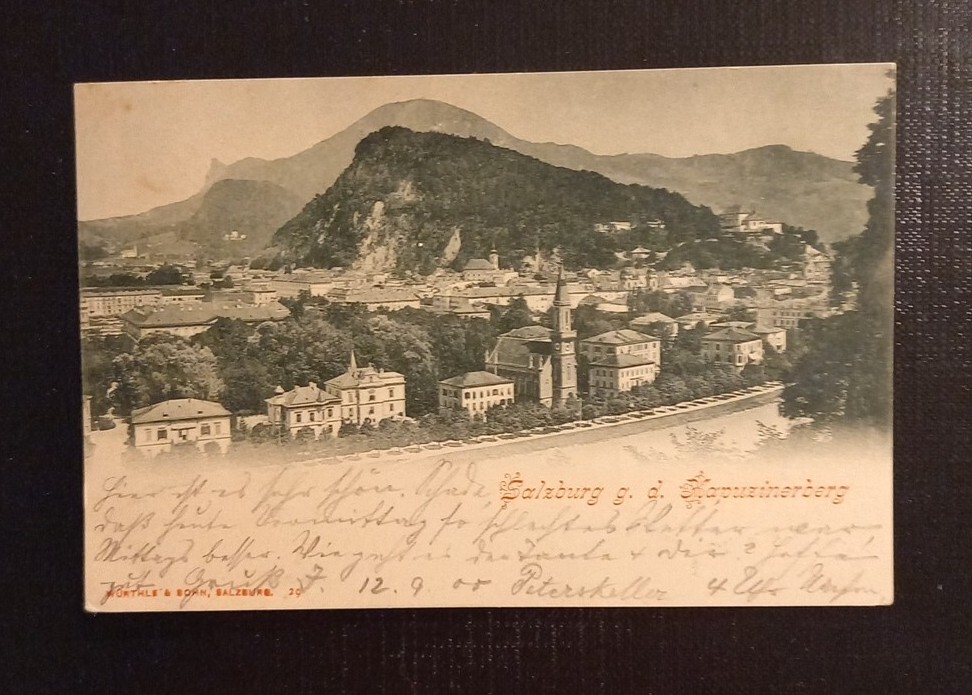 Hier ist es sehr schön. Schade, Salzburg g. d. Kapuzinerberg
daß heute Vormittag so schlechtes Wetter war
Mittags besser. Wie geht es der Tante + dir?
gut Gruß F. 12.9 00 Peterskeller 4 Uhr Nachm.
WÜRTHLE & SOHN, SALZBURG. 20